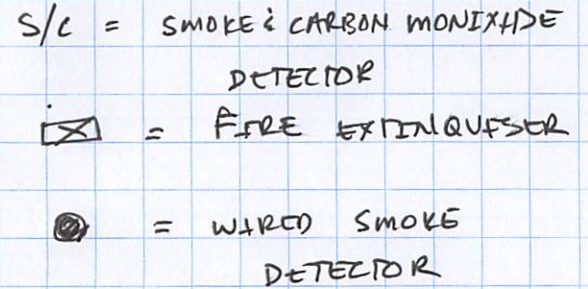 S/C = SMOKE & CARBON MONIXIDE
DETECTOR
= FIRE EXTINQUISER
= WIRED SMOKE
DETECTOR